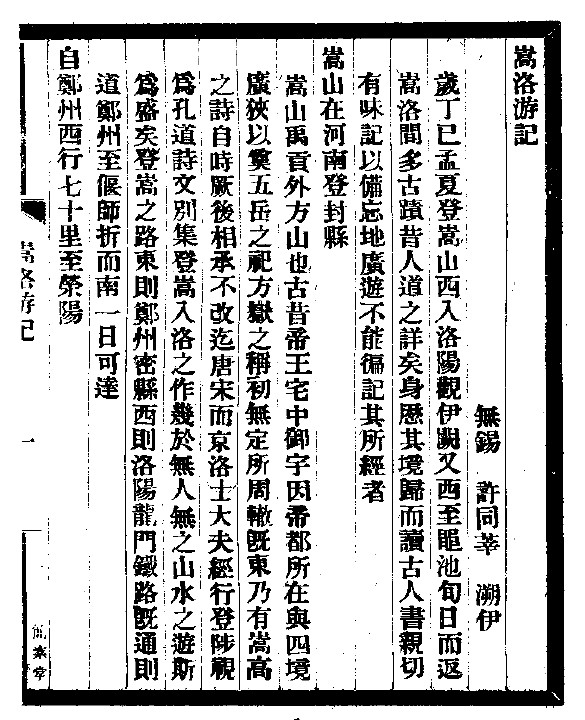 嵩洛游記
無錫 許同莘 溯伊
歲丁巳孟夏登嵩山西入洛陽觀伊闕又西至黽池旬日而返
嵩洛間多古蹟昔人道之詳矣身歷其境歸而讀古人書親切
有味記以備忘地廣遊不能徧記其所經者
嵩山在河南登封縣
嵩山禹貢外方山也古昔帝王宅中御宇因帝都所在與四境
廣狹以奠五岳之祀方嶽之稱初無定所周轍既東乃有嵩高
之詩自時厥後相承不改迄唐宋而京洛士大夫經行登陟視
為孔道詩文別集登嵩入洛之作幾於無人無之山水之遊斯
為盛矣登嵩之路東則鄭州密縣西則洛陽龍門鐵路既通則
道鄭州至偃師折而南一日可達
自鄭州西行七十里至滎陽
嵩洛游記
一
簡素堂